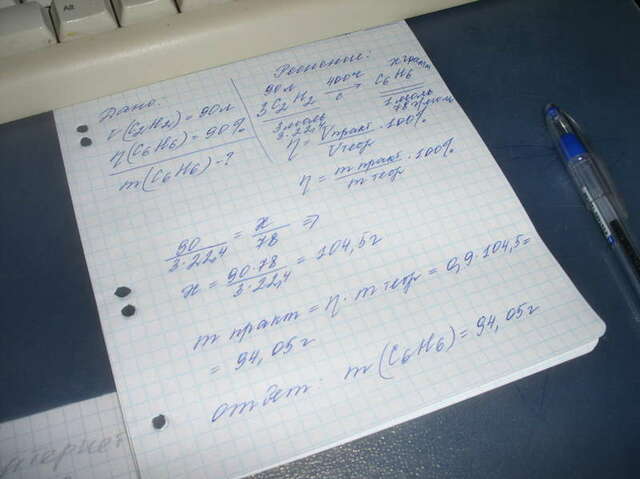 Дано:
V(C2H2) = 90л
η(C6H6) = 90%
m(C6H6) - ?
Решение:
90л 400°C x грамм
3C2H2 → C6H6
c
3 моль 1 моль
3·22,4 78 г/моль
η = Vпракт/Vтеор · 100%
η = m практ/m теор · 100%
90/3·22,4 = x/78 ⇒
x = 90·78/3·22,4 = 104,5г
m практ = η · m теор = 0,9·104,5=
= 94,05г
ответ: m(C6H6) = 94,05г
Alt